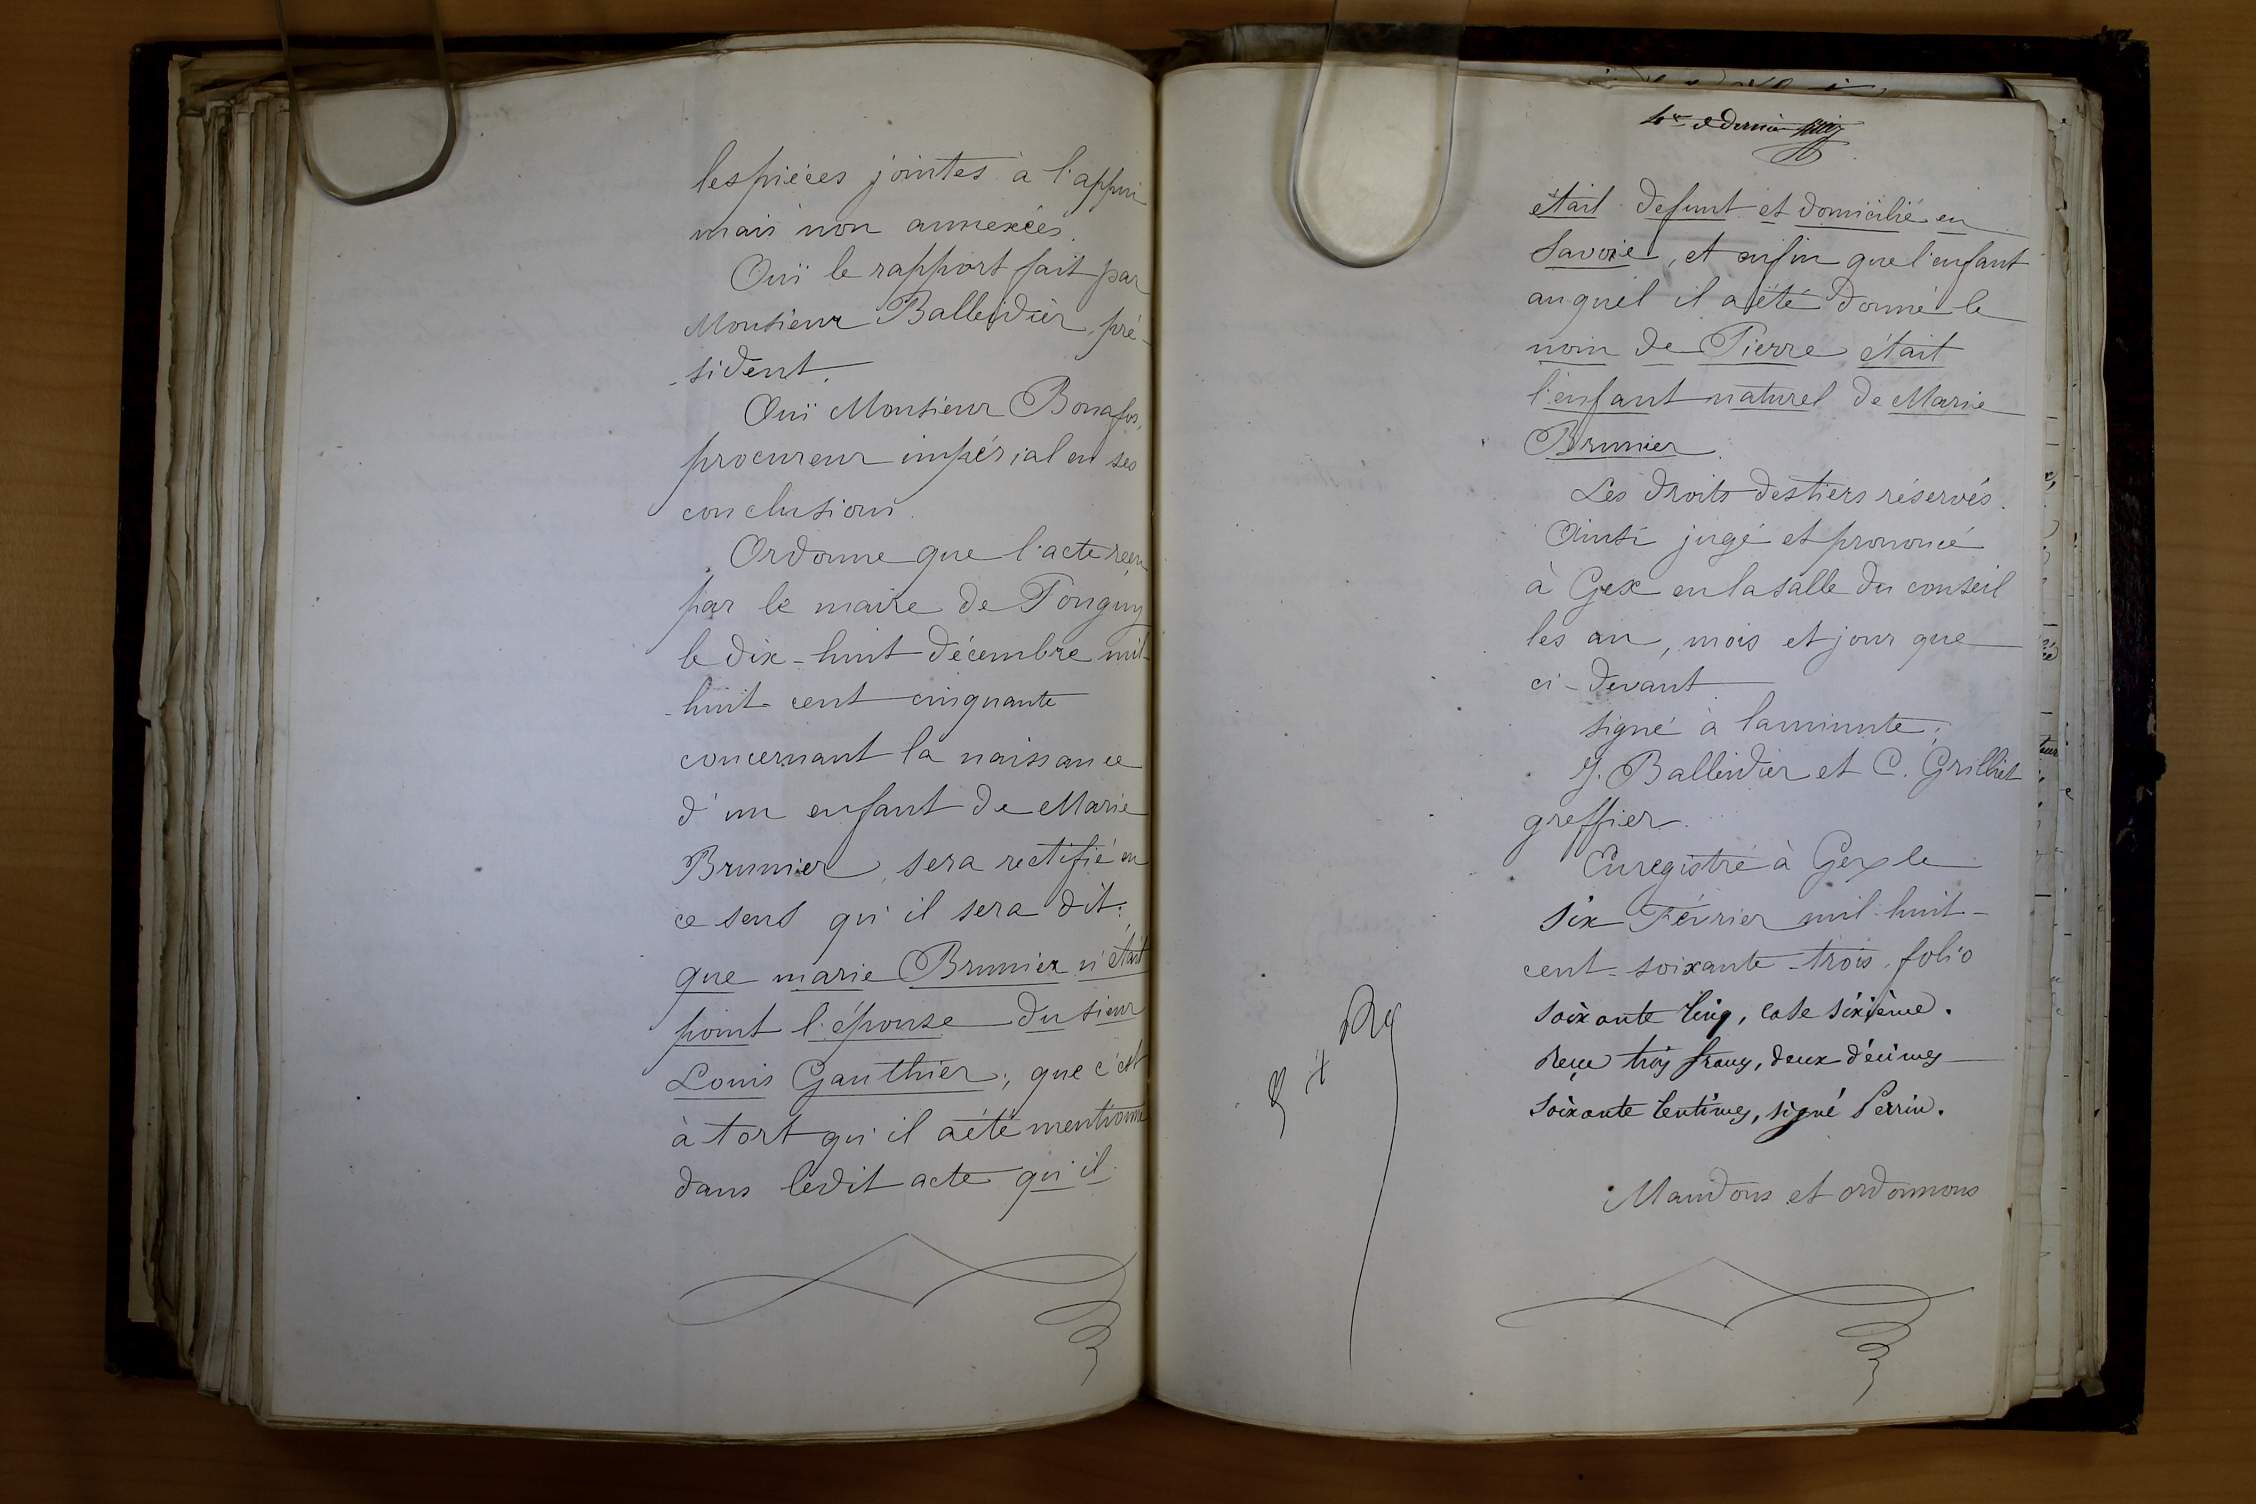 les pièces jointes à l'appui
mais non annexées.
Ouï le rapport fait par
Monsieur Balleidier, pré-
-sident.
Ouï Monsieur Bonafos,
procureur impérial en ses
conclusions.
Ordonne que l'acte reçu
par le maire de Pougny
le dix-huit décembre mil-
-huit cent cinquante
concernant la naissance
d'un enfant de Marie
Brunier, sera rectifié en
ce sens qu'il sera dit:
que marie Brunier n'était
point l'épouse du sieur
Louis Gauthier; que c'est
à tort qu'il a été mentionné
dans ledit acte qu'il
et dernier
était défunt et domicilié en
Savoie, et enfin que l'enfant
auquel il a été donné le
nom de Pierre était
l'enfant naturel de Marie
Brunier.
Les droits des tiers réservés.
Ainsi jugé et prononcé
à Gex en la salle du conseil
les an, mois et jour que
ci-devant
signé à la minute;
J. Balleidier et C. Grilliet
greffier.
Enregistré à Gex le
six Février mil huit-
cent-soixante-trois, folio
soixante cinq, case sixième.
Reçu trois francs, deux décimes
soixante centimes, signé Perrin.
Mandons et ordonnons